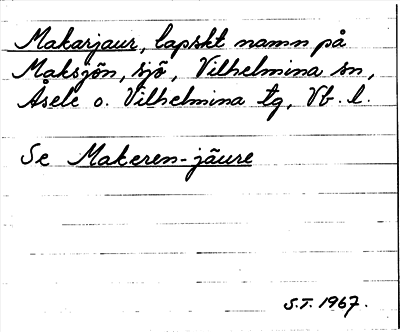 Makarjaur, lapskt namn på
Maksjön, sjö, Vilhelmina sn,
Åsele o. Vilhelmina tg, Vb. l.
Se Makeren-jäure
S.T. 1967.